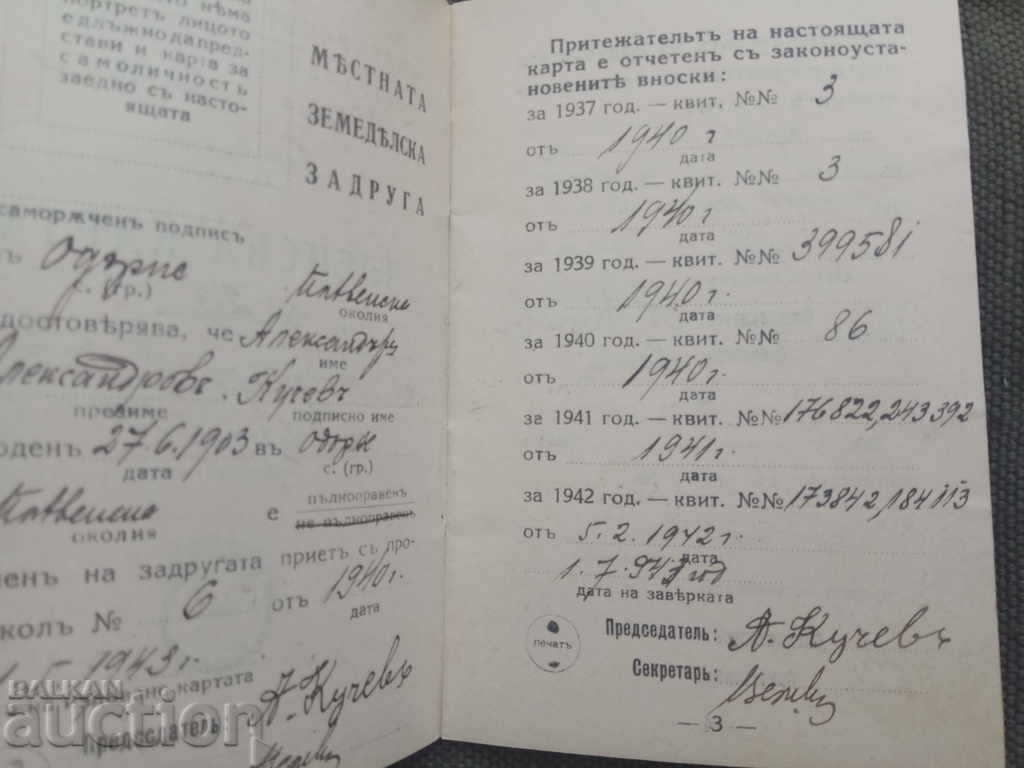 нѣма
портретъ лицото
е длъжно да пред-
стави и карта за
самоличность
заедно съ насто-
ящата
МѢСТНАТА
ЗЕМЕДѢЛСКА
ЗАДРУГА
саморѫченъ подписъ
с. (гр.)
околия
достовѣрява, че Александъръ
име
Александровъ Кучевъ
презиме подписно име
27.6.1903 въ
дата с. (гр.)
е пълноправенъ
околия не пълноправенъ
на задругата приетъ съ про-
колъ № 6 отъ 1940 г.
дата
1943 г.
картата
Председатель: А. Кучевъ
Притежательтъ на настоящата
карта е отчетенъ съ законоуста-
новенитѣ вноски:
за 1937 год. — квит. №№ 3
отъ 1940 г
дата
за 1938 год. — квит. №№ 3
отъ 1940 г
дата
за 1939 год. — квит. №№ 399581
отъ 1940 г.
дата
за 1940 год. — квит. №№ 86
отъ 1940 г.
дата
за 1941 год. — квит. №№ 176822,243392
отъ 1941 г.
дата
за 1942 год. — квит. №№ 173842,184113
отъ 5.2.1942 г.
дата
1.7.943 год
дата на заверката
печатъ
Председатель: А. Кучевъ
Секретарь:
— 3 —
BALKAN
auction